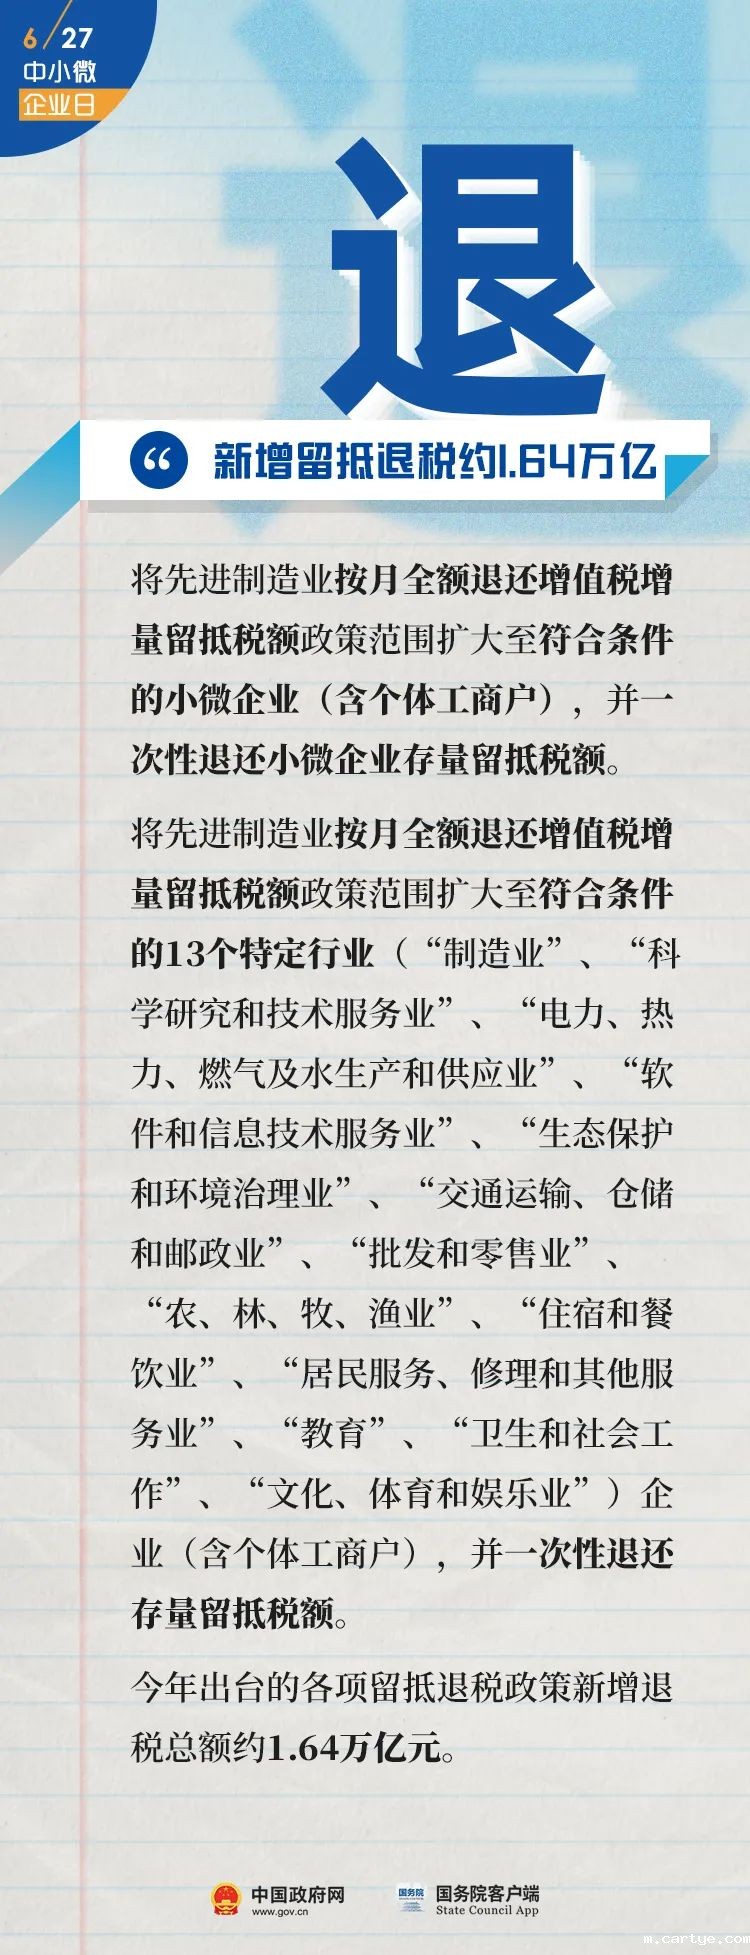 6/27
中小微
企业日
退
“ 新增留抵退税约1.64万亿
将先进制造业按月全额退还增值税增
量留抵税额政策范围扩大至符合条件
的小微企业（含个体工商户），并一
次性退还小微企业存量留抵税额。
将先进制造业按月全额退还增值税增
量留抵税额政策范围扩大至符合条件
的13个特定行业（“制造业”、“科
学研究和技术服务业”、“电力、热
力、燃气及水生产和供应业”、“软
件和信息技术服务业”、“生态保护
和环境治理业”、“交通运输、仓储
和邮政业”、“批发和零售业”、
“农、林、牧、渔业”、“住宿和餐
饮业”、“居民服务、修理和其他服
务业”、“教育”、“卫生和社会工
作”、“文化、体育和娱乐业”）企
业（含个体工商户），并一次性退还
存量留抵税额。
今年出台的各项留抵退税政策新增退
税总额约1.64万亿元。
中国政府网
www.gov.cn
国务院
国务院客户端
State Council App
m.cartye.com